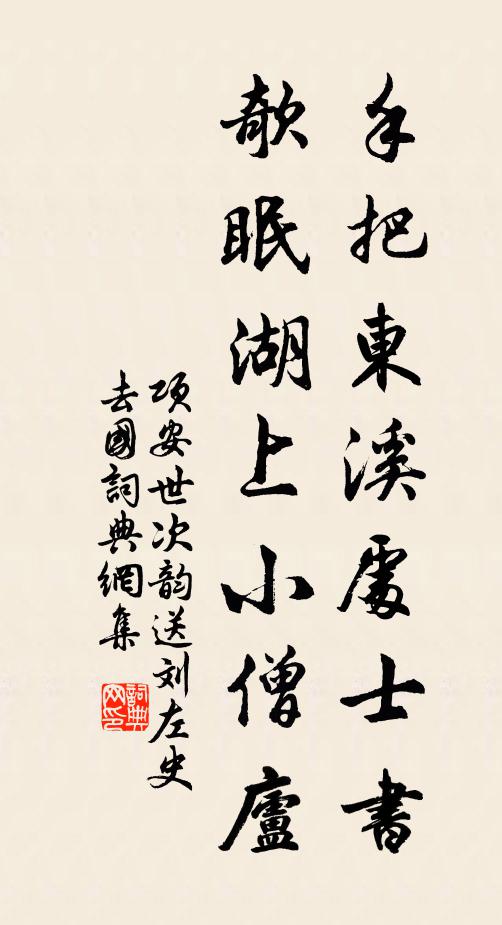 手把東溪處士書
欹眠湖上小僧廬
项安世次韵送刘左史
去國詞典網集
詞典网印